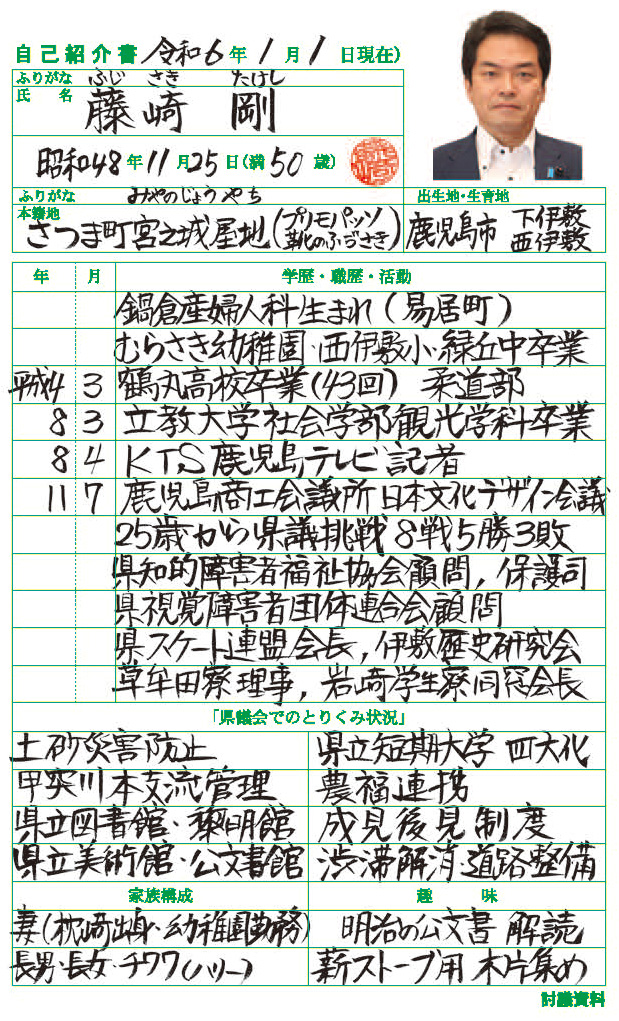 自己紹介書 令和6年1月1日現在)
ふりがな ふじ さき たけし
氏名 藤崎 剛
昭和48年11月25日(満50歳)
ふりがな みやのじょうやち
本籍地 さつま町宮之城屋地(プリモパッソ 靴のふじさき)
出生地・生育地
鹿児島市 下伊敷 西伊敷
年 月 学歴・職歴・活動
鍋倉産婦人科生まれ(易居町)
むらさき幼稚園・西伊敷小・緑丘中卒業
平成4 3 鶴丸高校卒業(43回) 柔道部
8 3 立教大学社会学部観光学科卒業
8 4 KTS鹿児島テレビ記者
11 7 鹿児島商工会議所 日本文化デザイン会議
25歳から県議挑戦 8戦5勝3敗
県知的障害者福祉協会顧問, 保護司
県視覚障害者団体連合会顧問
県スケート連盟会長, 伊敷歴史研究会
草牟田寮理事, 岩崎学生寮同窓会長
「県議会でのとりくみ状況」
土砂災害防止 県立短期大学 四大化
甲突川本支流管理 農福連携
県立図書館・黎明館 成年後見制度
県立美術館・公文書館 渋滞解消道路整備
家族構成 趣味
妻(枕崎出身・幼稚園勤務) 明治の公文書 解読
長男・長女・チワワ(ハリー) 薪ストーブ用 木片集め
討議資料